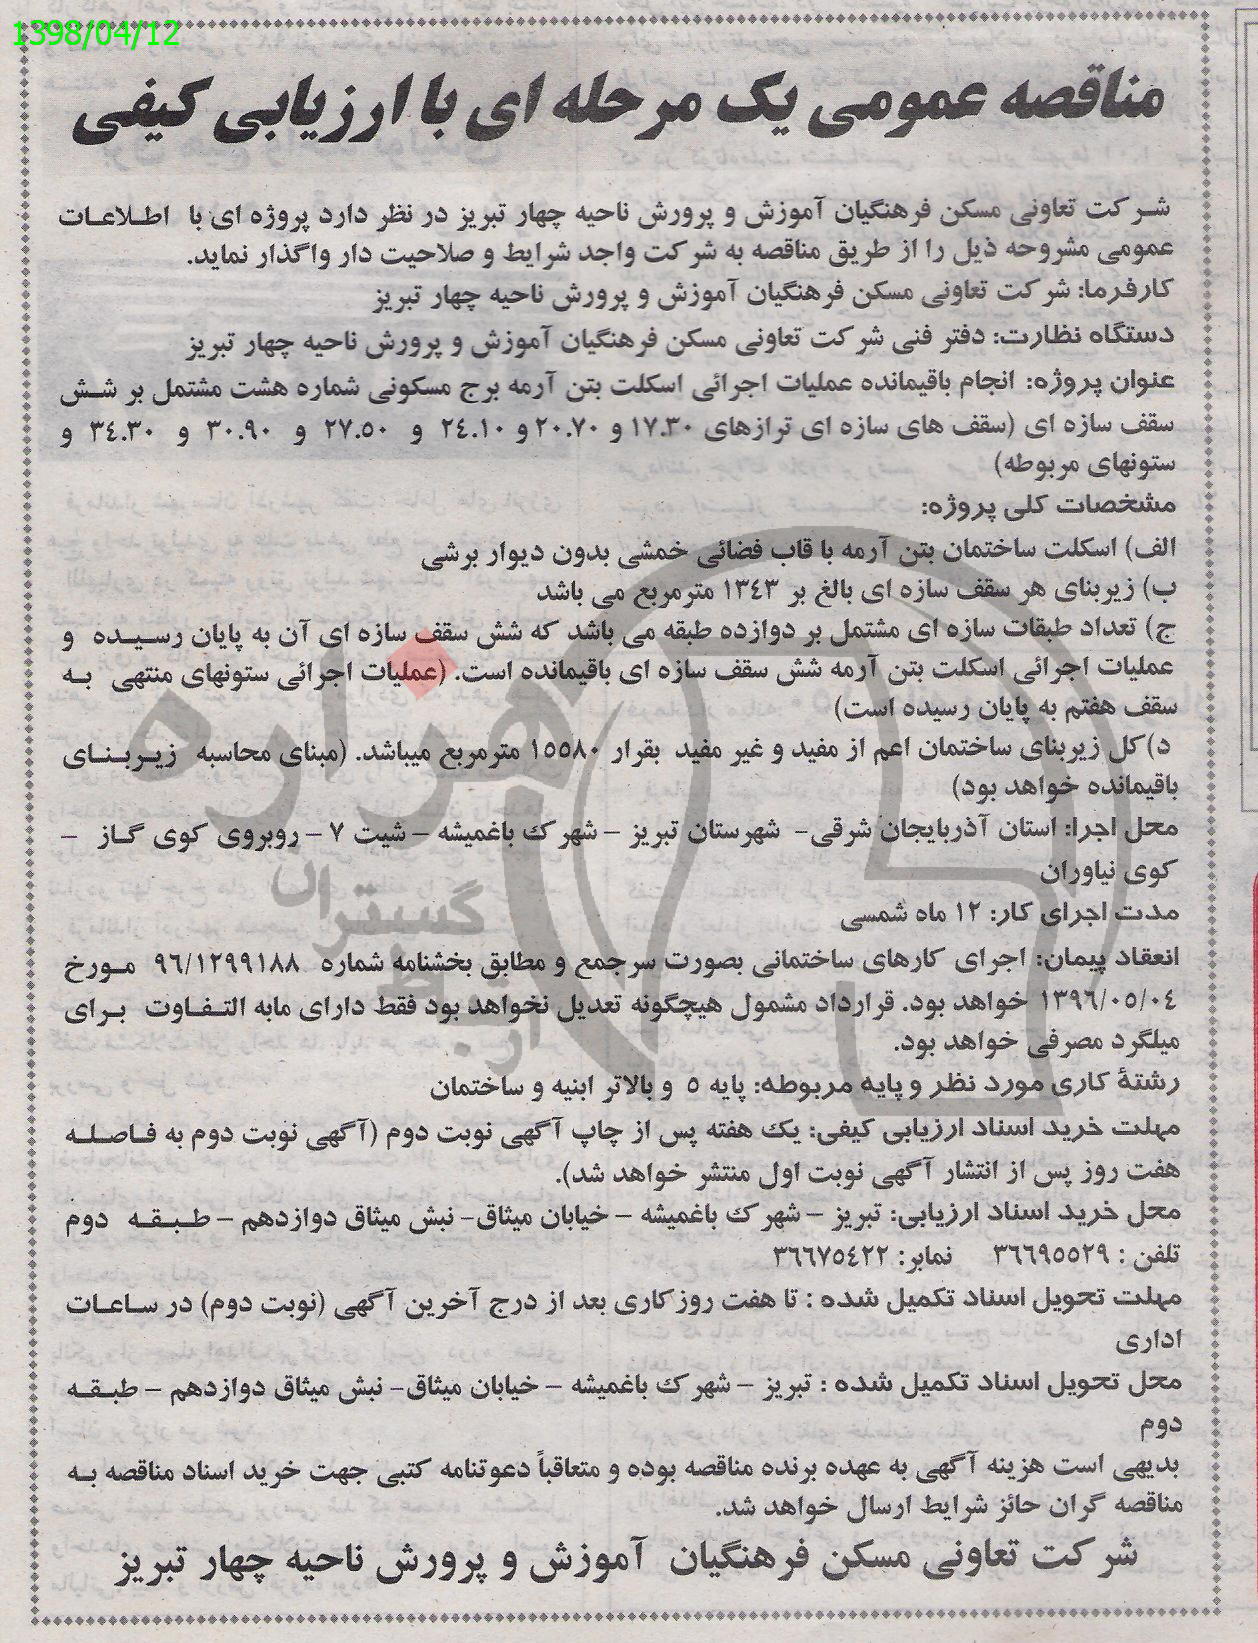 1398/04/12
مناقصه عمومی یک مرحله ای با ارزیابی کیفی
شرکت تعاونی مسکن فرهنگیان آموزش و پرورش ناحیه چهار تبریز در نظر دارد پروژه ای با اطلاعات
عمومی مشروحه ذیل را از طریق مناقصه به شرکت واجد شرایط و صلاحیت دار واگذار نماید.
کارفرما: شرکت تعاونی مسکن فرهنگیان آموزش و پرورش ناحیه چهار تبریز
دستگاه نظارت: دفتر فنی شرکت تعاونی مسکن فرهنگیان آموزش و پرورش ناحیه چهار تبریز
عنوان پروژه: انجام باقیمانده عملیات اجرائی اسکلت بتن آرمه برج مسکونی شماره هشت مشتمل بر شش
سقف سازه ای (سقف های سازه ای ترازهای ۱۷.۳۰ و ۲۰.۷۰ و ۲۴.۱۰ و ۲۷.۵۰ و ۳۰.۹۰ و ۳۴.۳۰ و
ستونهای مربوطه)
مشخصات کلی پروژه:
الف) اسکلت ساختمان بتن آرمه با قاب فضائی خمشی بدون دیوار برشی
ب) زیربنای هر سقف سازه ای بالغ بر ۱۳۴۳ مترمربع می باشد
ج) تعداد طبقات سازه ای مشتمل بر دوازده طبقه می باشد که شش سقف سازه ای آن به پایان رسیده و
عملیات اجرائی اسکلت بتن آرمه شش سقف سازه ای باقیمانده است. (عملیات اجرائی ستونهای منتهی به
سقف هفتم به پایان رسیده است)
د)کل زیربنای ساختمان اعم از مفید و غیر مفید بقرار ۱۵۵۸۰ مترمربع میباشد. (مبنای محاسبه زیربنای
باقیمانده خواهد بود)
محل اجرا: استان آذربایجان شرقی- شهرستان تبریز – شهرک باغمیشه – شیت ۷ – روبروی کوی گاز –
کوی نیاوران
مدت اجرای کار: ۱۲ ماه شمسی
انعقاد پیمان: اجرای کارهای ساختمانی بصورت سرجمع و مطابق بخشنامه شماره ۹۶/۱۲۹۹۱۸۸ مورخ
۱۳۹۶/۰۵/۰۴ خواهد بود. قرارداد مشمول هیچگونه تعدیل نخواهد بود فقط دارای مابه التفاوت برای
میلگرد مصرفی خواهد بود.
رشتهٔ کاری مورد نظر و پایه مربوطه: پایه ۵ و بالاتر ابنیه و ساختمان
مهلت خرید اسناد ارزیابی کیفی: یک هفته پس از چاپ آگهی نوبت دوم (آگهی نوبت دوم به فاصله
هفت روز پس از انتشار آگهی نوبت اول منتشر خواهد شد).
محل خرید اسناد ارزیابی: تبریز – شهرک باغمیشه – خیابان میثاق- نبش میثاق دوازدهم – طبقه دوم
تلفن : ۳۶۶۹۵۵۲۹ نمابر: ۳۶۶۷۵۴۲۲
مهلت تحویل اسناد تکمیل شده : تا هفت روزکاری بعد از درج آخرین آگهی (نوبت دوم) در ساعات
اداری
محل تحویل اسناد تکمیل شده : تبریز – شهرک باغمیشه – خیابان میثاق- نبش میثاق دوازدهم – طبقه
دوم
بدیهی است هزینه آگهی به عهده برنده مناقصه بوده و متعاقباً دعوتنامه کتبی جهت خرید اسناد مناقصه به
مناقصه گران حائز شرایط ارسال خواهد شد.
شرکت تعاونی مسکن فرهنگیان آموزش و پرورش ناحیه چهار تبریز
هزاره
گستران